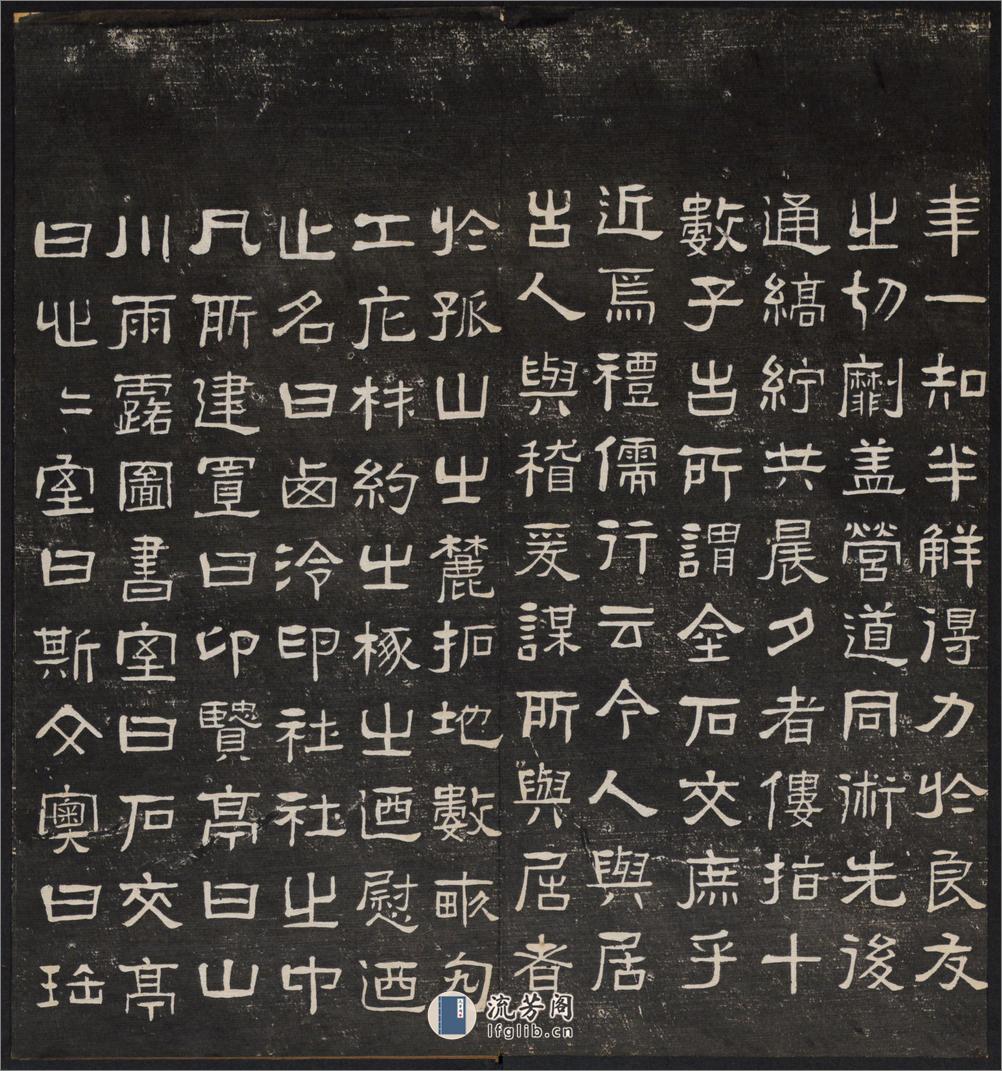 年一知半解得力於良友
之切劘盖營道同術先後
通縞紵共晨夕者僂指十
數子古所謂金石交庶乎
近焉禮儒行云今人與居
古人與稽爰謀所與居者
於孤山之麓拓地數畝勼
工庀材約之椓之迺慰迺
止名曰卤泠印社社之中
凡所建置曰卬賢亭曰山
川雨露圖書室曰石交亭
曰心〻室曰斯文奧曰珤
流芳阁
lfglib.cn